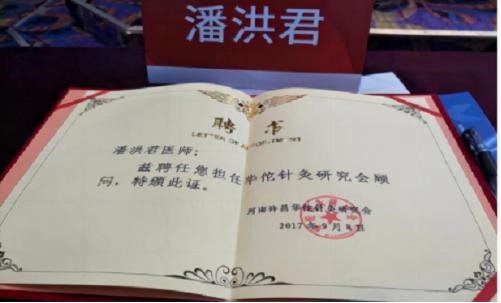 潘洪君
聘书
LETTER OF APPOINTMENT
潘洪君医师：
兹聘任您担任华佗针灸研究会顾
问，特颁此证。
河南许昌华佗针灸研究会
2017年9月8日